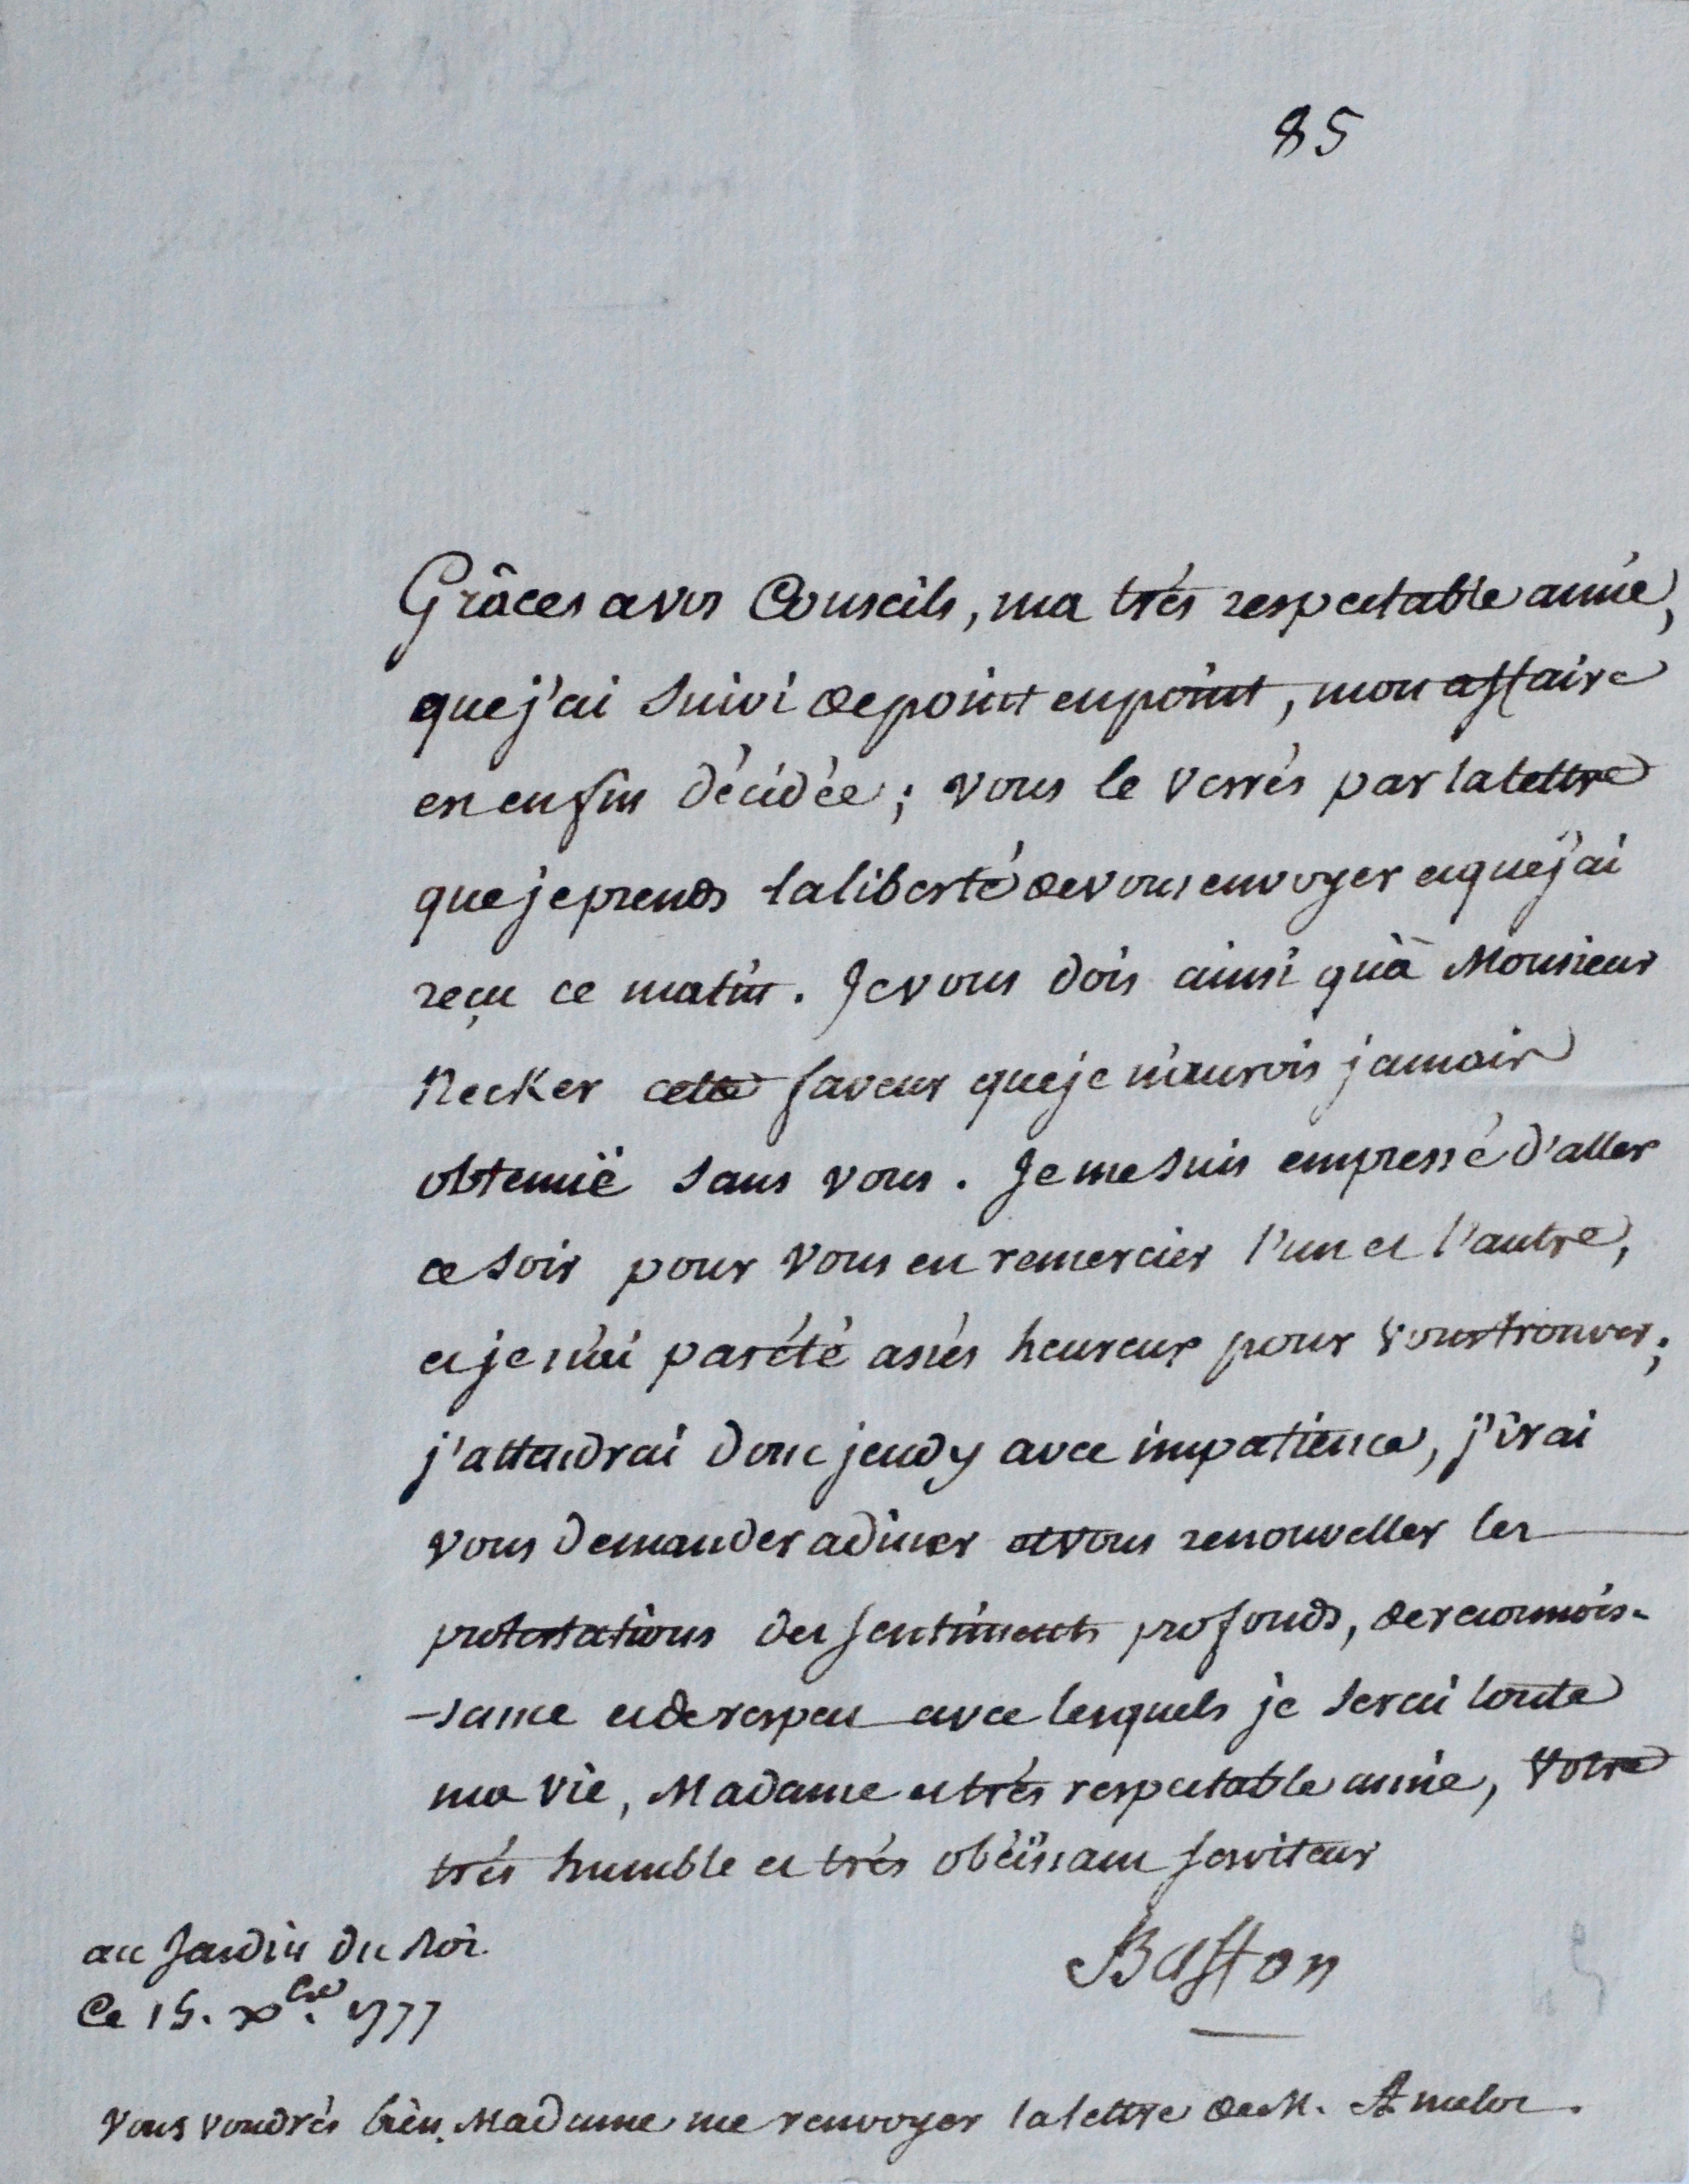 85
Grâces a vos Conseils, ma trés respectable amie,
que j'ai suivi de point en point, mon affaire
est enfin décidée; vous le verrés par la lettre
que je prends la liberté de vous envoyer et que j'ai
reçu ce matin. Je vous dois ainsi qu'à Monsieur
Necker cette faveur que je n'aurois jamais
obtenuë sans vous. Je me suis empressé d'aller
ce soir pour vous en remercier l'un et l'autre,
et je n'ai pas été assés heureux pour vous trouver;
j'attendrai donc jeudy avec impatience, j'irai
vous demander a diner et vous renouveller les
protestations des sentiments profonds, de reconnois-
-sance et de respect avec lesquels je serai toute
ma vie, Madame et trés respectable amie, Votre
trés humble et trés obéïssant serviteur
Buffon
au Jardin du Roi
Ce 15. xbre. 1777
Vous voudrés bien, Madame me renvoyer la lettre de M. Amelot.